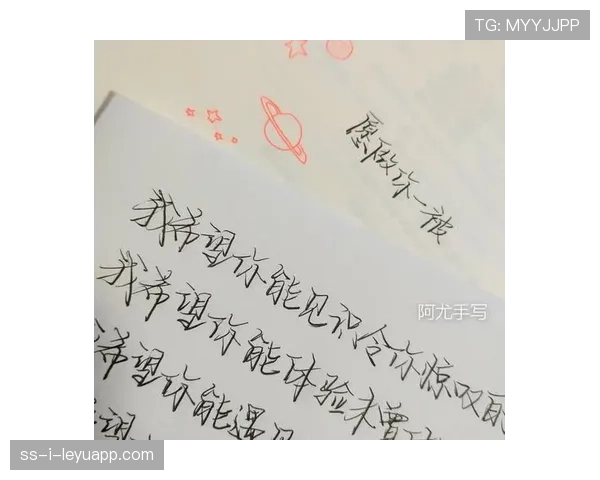 TG: MYYJJPP
愿做你一被
我希望你能见识令你惊叹的
我希望你能体验未曾体
希望你能遇见
希望
阿尤手写
ss-i-leyuapp.com